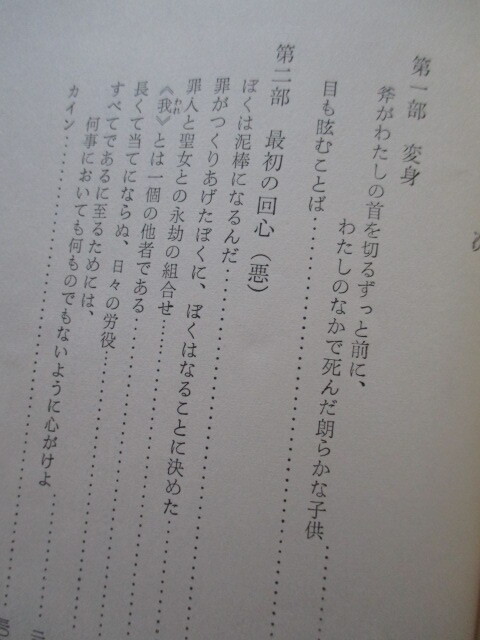 第一部　変身
斧がわたしの首を切るずっと前に、
わたしのなかで死んだ朗らかな子供
目も眩むことば
第二部　最初の回心（悪）
ぼくは泥棒になるんだ
罪がつくりあげたぼくに、ぼくはなることに決めた
罪人と聖女との永劫の組合せ
《我》とは一個の他者である
われ
長くて当てにならぬ、日々の労役
すべてであるに至るためには、
何事においても何ものでもないように心がけよ
カイン